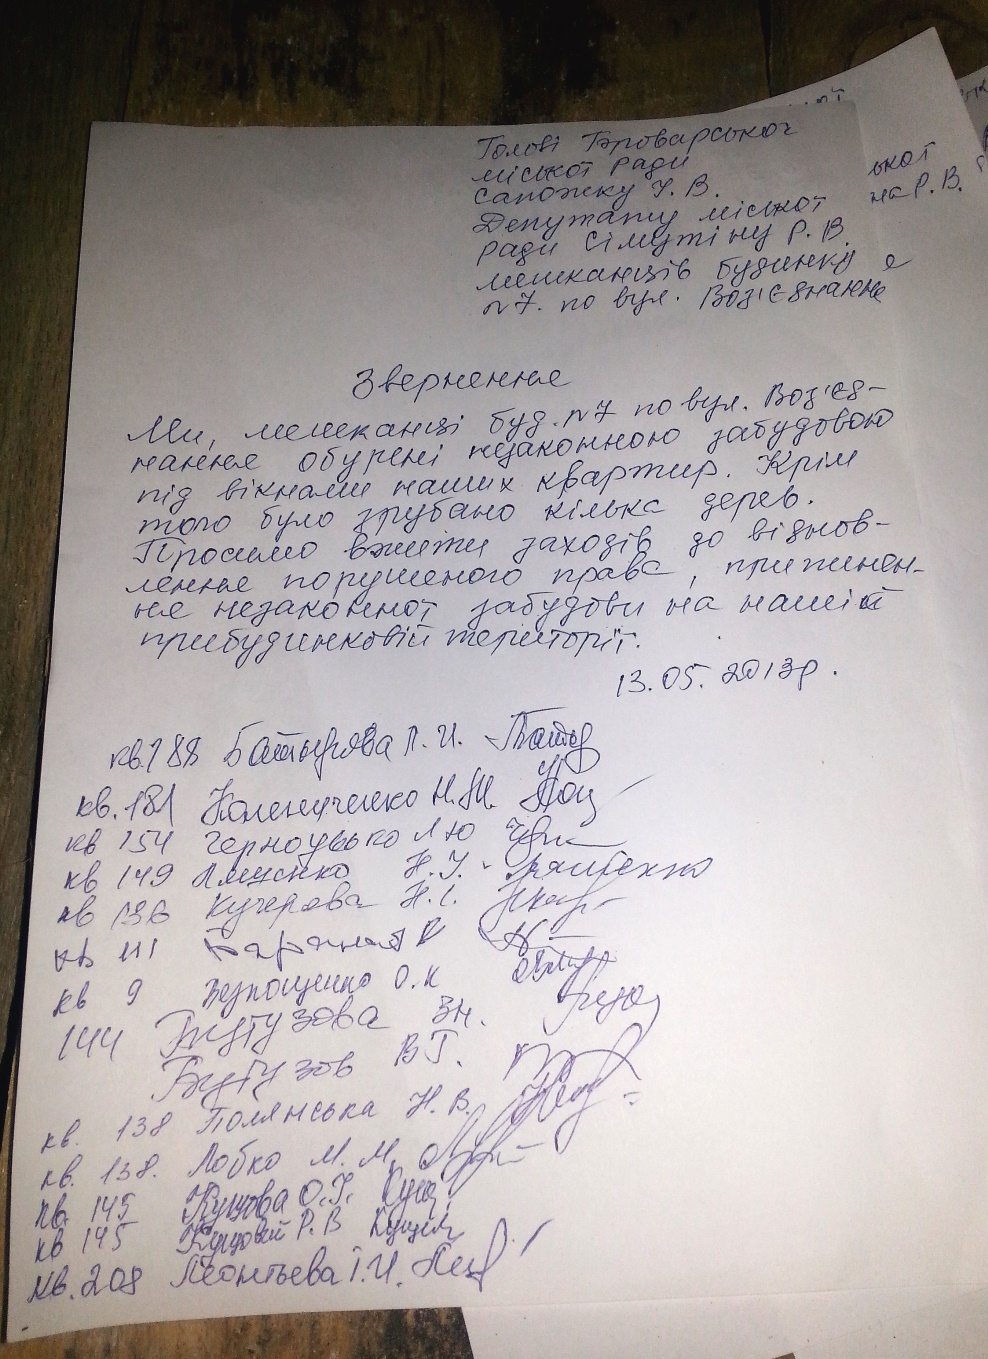 Голові Броварської
міської ради
Сапожку І. В.
Депутату міської
ради Сімутіну Р. В.
мешканців будинку
№7. по вул. Воз'єднання
Звернення
Ми, мешканці буд. №7 по вул. Воз'єд-
нання обурені незаконною забудовою
під вікнами наших квартир. Крім
того було зрубано кілька дерев.
Просимо вжити заходів до віднов-
лення порушеного права, припинен-
ня незаконної забудови на нашій
прибудинковій території.
13.05.2013р.
кв.188 Батырева Л. И.
кв. 181 Н.М.
кв 154 Л Ю
кв 149 Н.І.
кв 136 Кучерова Н.І.
кв 111
кв 9 О.К
144 Бутузова Зн.
Бутузов ВГ.
кв. 138 Полянська Н.В.
кв. 138. Лобко М.М.
кв. 145 Куцова О.Г.
кв 145 Р.В
кв. 208 Леонтьева Г.И.